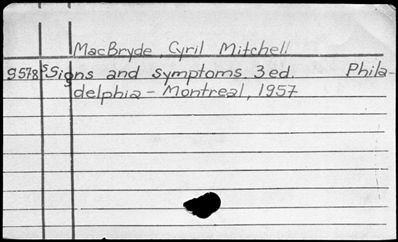 MacBryde, Cyril Mitchell
9578 s Signs and symptoms. 3 ed. Phila-
delphia - Montreal, 1957